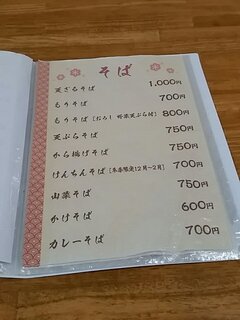 そば
天ざるそば 1,000円
もりそば 700円
もりそば [おろし 野菜天ぷら付] 800円
天ぷらそば 750円
から揚げそば 750円
けんちんそば [冬季限定12月~2月] 700円
山菜そば 750円
かけそば 600円
カレーそば 700円